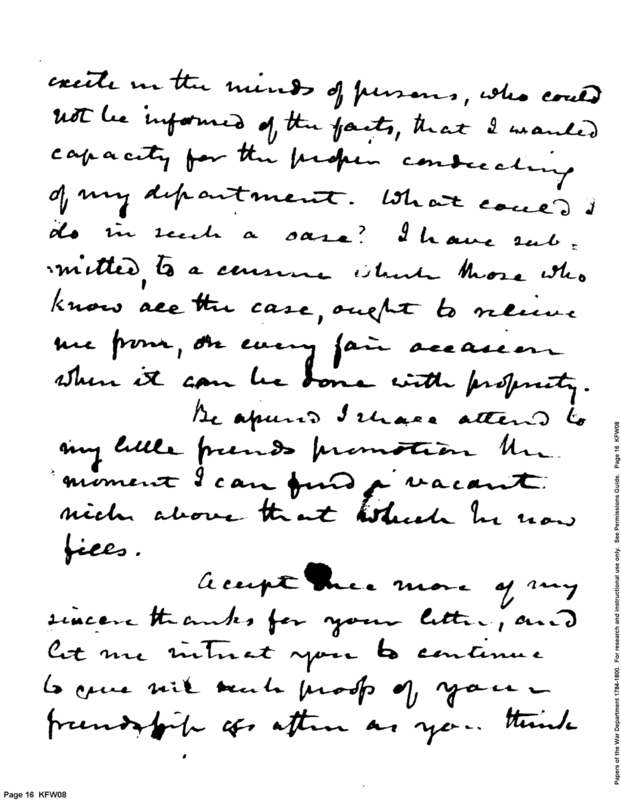 excite in the minds of persons, who could
not be informed of the facts, that I wanted
capacity for the proper conducting
of my department. What could I
do in such a case? I have sub=
mitted, to a censure which those who
know all the case, ought to relieve
me from, on every fair occasion
when it can be done with propriety.
Be assured I shall attend to
my little friends promotion the
moment I can find a vacant
niche above that which he now
fills.
Accept once more of my
sincere thanks for your letter, and
let me intreat you to continue
to give me such proofs of your
friendship as often as you think
Page 16 KFW08
Papers of the War Department 1784-1800. For research and instructional use only. See Permissions Guide. Page 16 KFW08